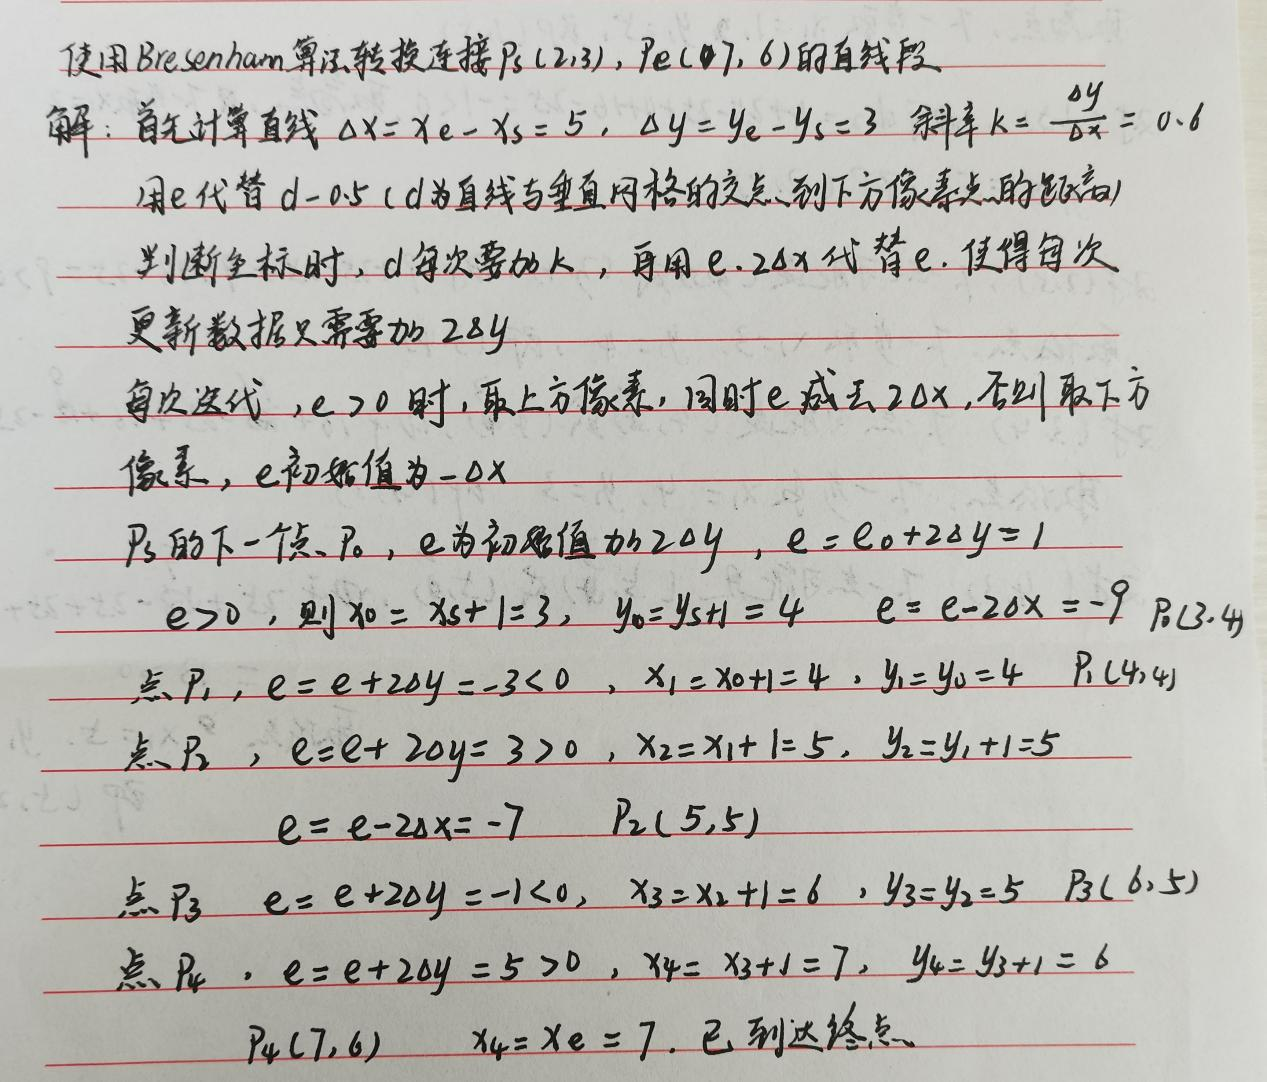 使用Bresenham算法转换连接Ps(2,3),Pe(7,6)的直线段
解:首先计算直线 Δx=xe-xs=5, Δy=ye-ys=3 斜率k=Δy/Δx=0.6
用e代替d-0.5(d为直线与垂直网格的交点到下方像素点的距离)
判断坐标时,d每次要加k,再用e·2Δx代替e.使得每次
更新数据只需要加2Δy
每次迭代,e>0时,取上方像素,同时e减去2Δx,否则取下方
像素,e初始值为-Δx
Ps的下一个点P0,e为初始值加2Δy,e=e0+2Δy=1
e>0,则x0=xs+1=3, y0=ys+1=4 e=e-2Δx=-9 P0(3.4)
点P1,e=e+2Δy=-3<0,x1=x0+1=4,y1=y0=4 P1(4,4)
点P2,e=e+2Δy=3>0,x2=x1+1=5, y2=y1+1=5
e=e-2Δx=-7 P2(5,5)
点P3 e=e+2Δy=-1<0, x3=x2+1=6,y3=y2=5 P3(6,5)
点P4.e=e+2Δy=5>0,x4=x3+1=7, y4=y3+1=6
P4(7,6) x4=xe=7.已到达终点